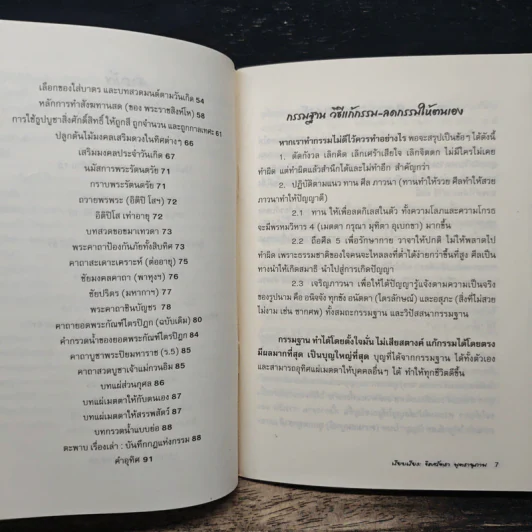 เลือกของใส่บาตร และบทสวดมนต์ตามวันเกิด 54
หลักการทำสังฆทานสด (ของ พระราชสิงห์โห) 59
การใช้ธูปบูชาสิ่งศักดิ์สิทธิ์ ให้ถูกสี ถูกจำนวน และถูกกาลเทศะ 61
ปลูกต้นไม้มงคลเสริมดวงในทิศต่างๆ 66
เสริมมงคลประจำวันเกิด 67
นมัสการพระรัตนตรัย 69
กราบพระรัตนตรัย 69
ถวายพรพระ (อิติปิ โสฯ) 70
อิติปิโส เท่าอายุ 71
บทสวดขอขมาเทวดา 73
พระคาถาป้องกันภัยทั้งสิบทิศ 73
คาถาสะเดาะเคราะห์ (ต่ออายุ) 75
ชัยมงคลคาถา (พาหุงฯ) 75
ชัยปริตร (มหากาฯ) 76
พระคาถาชินบัญชร 78
คาถายอดพระกัณฑ์ไตรปิฎก (ฉบับเดิม) 80
คำกรวดน้ำของยอดพระกัณฑ์ไตรปิฎก 84
คาถาบูชาพระปิยมหาราช (ร.5) 85
คาถาสวดบูชาเจ้าแม่กวนอิม 85
บทแผ่ส่วนกุศล 86
บทแผ่เมตตาให้กับตนเอง 87
บทแผ่เมตตาให้สรรพสัตว์ 87
บทกรวดน้ำแบบย่อ 88
ตะพาบ เรื่องเล่า : บันทึกกฎแห่งกรรม 88
คำอุทิศ 91
กรรมฐาน วิธีแก้กรรม-ลดกรรมให้ตนเอง
หากเราทำกรรมไม่ดีไว้ควรทำอย่างไร พอจะสรุปเป็นข้อๆ ได้ดังนี้
1. ตัดกังวล เลิกคิด เลิกเศร้าเสียใจ เลิกจิตตก ไม่มีใครไม่เคย
ทำผิด แต่ทำผิดแล้วสำนึกได้และไม่ทำอีก สำคัญกว่า
2. ปฏิบัติตามแนว ทาน ศีล ภาวนา (ทานทำให้รวย ศีลทำให้สวย
ภาวนาทำให้ปัญญาดี)
2.1 ทาน ให้เพื่อลดกิเลสในตัว ทั้งความโลภและความโกรธ
จะมีพรหมวิหาร 4 (เมตตา กรุณา มุทิตา อุเบกขา) มากขึ้น
2.2 ถือศีล 5 เพื่อรักษากาย วาจาให้ปกติ ไม่ให้พลาดไป
ทำผิด เพราะธรรมชาติของใจคนจะไหลลงที่ต่ำได้ง่ายกว่าขึ้นที่สูง ศีลเป็น
ทางนำให้เกิดสมาธิ นำไปสู่การเกิดปัญญา
2.3 เจริญภาวนา เพื่อให้ได้ปัญญารู้แจ้งตามความเป็นจริง
ของรูปนาม คือ อนิจจัง ทุกขัง อนัตตา (ไตรลักษณ์) และอสุภะ (สิ่งที่ไม่สวย
ไม่งาม เช่น ซากศพ) ทั้งสมถะกรรมฐาน และวิปัสสนากรรมฐาน
กรรมฐาน ทำได้โดยตั้งใจมั่น ไม่เสียสตางค์ แก้กรรมได้โดยตรง
มีผลมากที่สุด เป็นบุญใหญ่ที่สุด บุญที่ได้จากกรรมฐาน ได้ทั้งตัวเอง
และสามารถอุทิศแผ่เมตตาให้บุคคลอื่นๆ ได้ ทำให้ทุกชีวิตดีขึ้น
เรียบเรียง 7